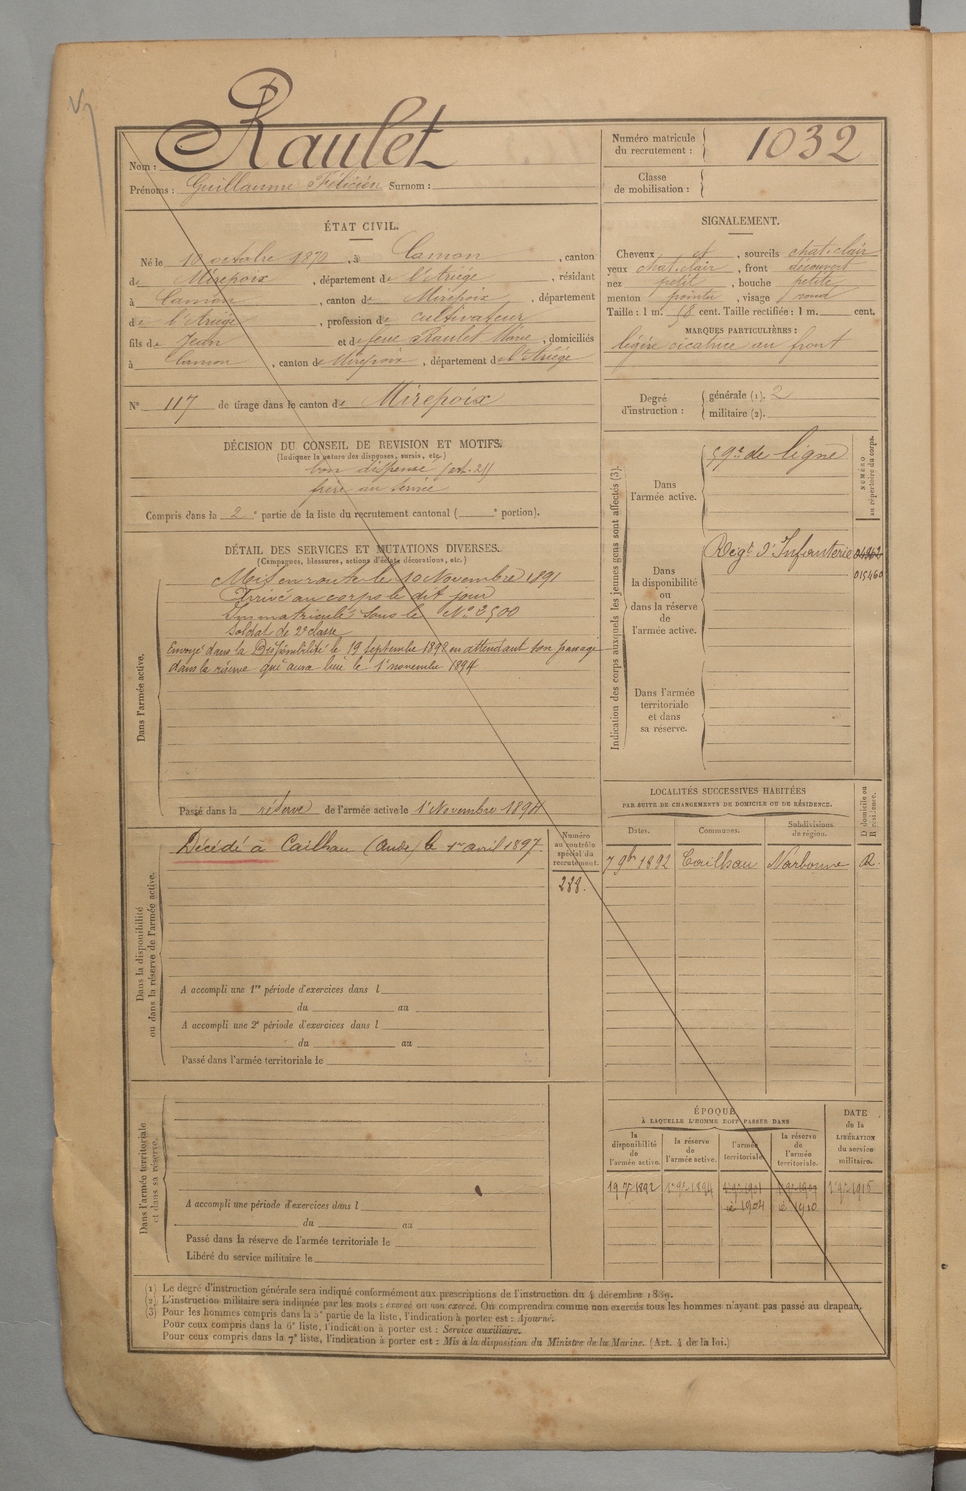 Nom : Raulet
Prénoms : Guillaume Félicien Surnom :
Numéro matricule
du recrutement : 1032
Classe
de mobilisation :
ÉTAT CIVIL.
Né le 10 octobre 1870, à Camon, canton
de Mirepoix, département de l'Ariége, résidant
à Camon, canton de Mirepoix, département
de l'Ariége, profession de cultivateur
fils de Jean et de feue Raulet Marie, domiciliés
à Camon, canton de Mirepoix, département de l'Ariége
N° 117 de tirage dans le canton de Mirepoix
DÉCISION DU CONSEIL DE REVISION ET MOTIFS.
(Indiquer la nature des dispenses, sursis, etc.)
bon dispensé (art. 21)
frère au service
Compris dans la 2e partie de la liste du recrutement cantonal ( e portion).
DÉTAIL DES SERVICES ET MUTATIONS DIVERSES.
(Campagnes, blessures, actions d'éclat, décorations, etc.)
Dans l'armée active.
Mis en route le 10 Novembre 1891
Arrivé au corps le dit jour
Immatriculé sous le No 2500
Soldat de 2e classe
Envoyé dans la Disponibilité le 19 septembre 1892 en attendant son passage
dans la réserve qui aura lieu le 1er novembre 1894
Passé dans la réserve de l'armée active le 1er Novembre 1894
Dans la disponibilité
ou dans la réserve de l'armée active.
Décédé à Cailhau (Aude) le 1er avril 1897.
Numéro
au contrôle
spécial du
recrutement.
288.
A accompli une 1re période d'exercices dans l
du au
A accompli une 2e période d'exercices dans l
du au
Passé dans l'armée territoriale le
Dans l'armée territoriale
et dans sa réserve.
A accompli une période d'exercices dans l
du au
Passé dans la réserve de l'armée territoriale le
Libéré du service militaire le
SIGNALEMENT.
Cheveux et, sourcils chat. clair
yeux chat. clair, front découvert
nez petit, bouche petite
menton pointu, visage rond
Taille : 1 m. cent. Taille rectifiée : 1 m. cent.
MARQUES PARTICULIÈRES :
légère cicatrice au front
Degré
d'instruction :
générale (1). 2
militaire (2).
Indication des corps auxquels les jeunes gens sont affectés (3).
NUMÉRO
au répertoire du corps.
Dans
l'armée active.
59e de ligne
Dans
la disponibilité
ou
dans la réserve
de
l'armée active.
Régt d'Infanterie
015460
Dans l'armée
territoriale
et dans
sa réserve.
LOCALITÉS SUCCESSIVES HABITÉES
PAR SUITE DE CHANGEMENTS DE DOMICILE OU DE RÉSIDENCE.
D domicile ou
R résidence.
Dates. Communes. Subdivisions
de région.
7 9bre 1892 Cailhau Narbonne R.
ÉPOQUE
À LAQUELLE L'HOMME DOIT PASSER DANS
DATE
de la
LIBÉRATION
du service
militaire.
la
disponibilité
de
l'armée active.
la réserve
de
l'armée active.
l'armée
territoriale.
la réserve
de
l'armée
territoriale.
19 7bre 1892 1er 9bre 1894 1er 9bre 1901 1er 9bre 1915
1904 1910
(1) Le degré d'instruction générale sera indiqué conformément aux prescriptions de l'instruction du 4 décembre 1889.
(2) L'instruction militaire sera indiquée par les mots : exercé ou non exercé. On comprendra comme non exercés tous les hommes n'ayant pas passé au drapeau.
(3) Pour les hommes compris dans la 5e partie de la liste, l'indication à porter est : Ajourné.
Pour ceux compris dans la 6e liste, l'indication à porter est : Service auxiliaire.
Pour ceux compris dans la 7e liste, l'indication à porter est : Mis à la disposition du Ministre de la Marine. (Art. 4 de la loi.)